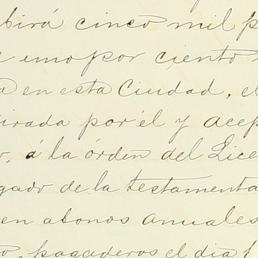 birá cinco mil p
e uno por ciento
a en esta Ciudad, el
urada por él y acep
, á la órden del Lice
gado de la testamenta
en abonos anuales
o, pagaderos el dia 1